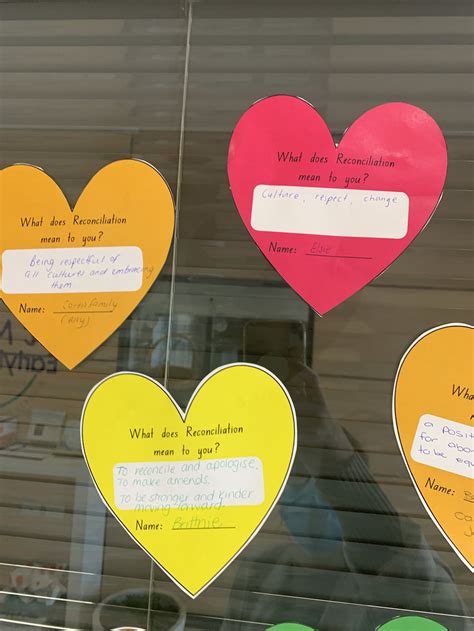 What does Reconciliation
mean to you?
Culture, respect, change
Name: Elsie
What does Reconciliation
mean to you?
Being respectful of
all cultures and embracing
them
Name:
What does Reconciliation
mean to you?
To reconcile and apologise.
To make amends.
To be stronger and kinder
moving forward.
Name: Brittnie
Wha
me
a posit
for abo
to be equ
Name:
Early